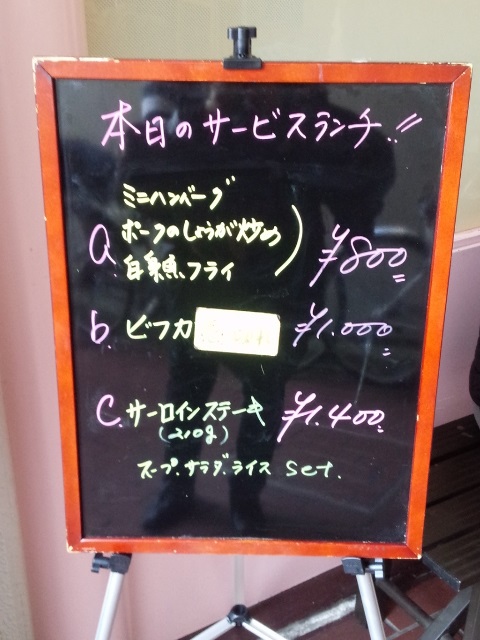 本日のサービスランチ!!
ミニハンバーグ
a. ポークのしょうが炒め ¥800
白身魚フライ
b. ビフカ ¥1.000
C. サーロインステーキ ¥1.400
(210g)
スープ.サラダ.ライス set.